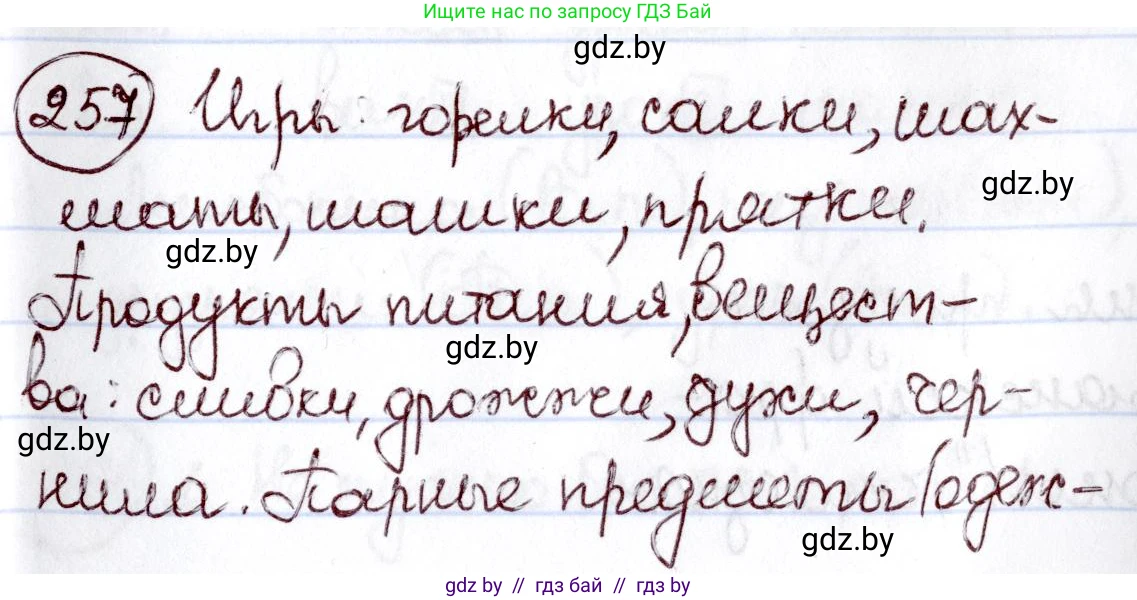 Ищите нас по запросу ГДЗ Бай
gdz.by
257 Игры: горелки, салки, шах-
gdz.by
маты, шашки, прятки.
gdz.by
Продукты питания, вещест-
gdz.by
ва: сливки, дрожжи, духи, чер-
gdz.by
нила. Парные предметы (одеж-
gdz.by
gdz by // гдз бай // гдз by